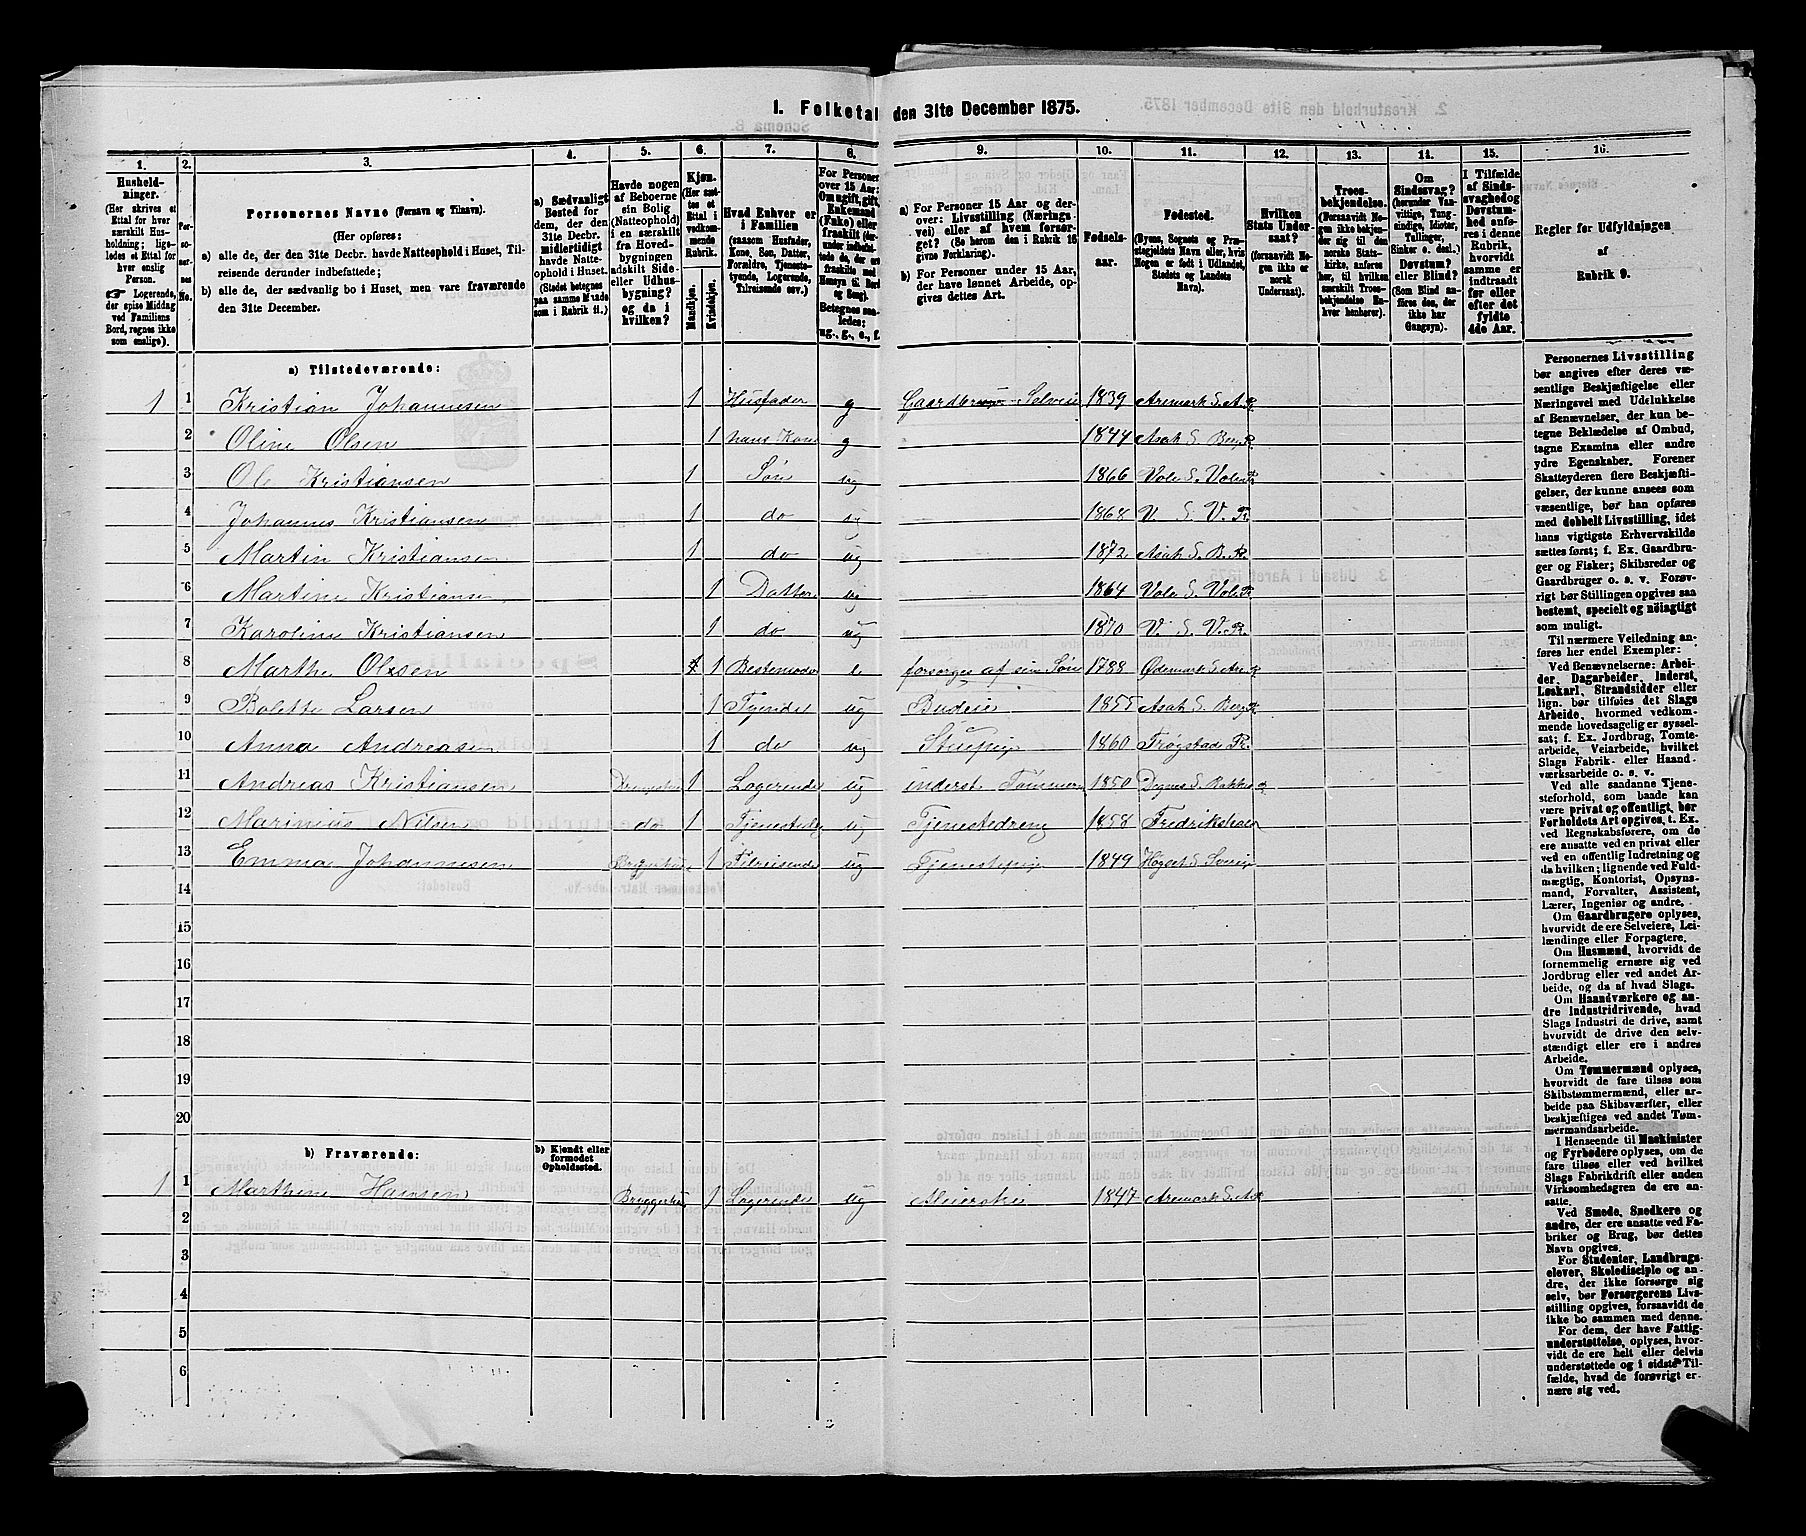 1. Folketal den 31te December 1875.
1. 2. 3. 4. 5. 6. 7. 8. 9. 10. 11. 12. 13. 14. 15. 16.
Hushold-
ninger.
(Her skrives et
Ettal for hver
særskilt Hus-
holdning; lige-
ledes et Ettal for
hver enslig
Person.
☞ Logerende,
der spise Middag
ved Familiens
Bord, regnes ikke
som enslige).
Per-
so-
ner-
nes
No.
Personernes Navne (Fornavn og Tilnavn).
(Her opføres:
a) alle de, der den 31te Decbr. havde Natteophold i Huset, Til-
reisende derunder indbefattede;
b) alle de, der sædvanlig bo i Huset, men vare fraværende
den 31te December.
a) Sædvanligt
Bosted for
dem, der den
31te Decbr.
midlertidigt
havde Natte-
ophold i Huset.
(Stedet betegnes
paa samme Maade
som i Rubrik 11.)
Havde nogen
af Beboerne
sin Bolig
(Natteophold)
i en særskilt
fra Hoved-
bygningen
adskilt Side-
eller Udhus-
bygning?
og da i
hvilken?
Kjøn.
(Her sæt-
tes et
Ettal i
vedkom-
mende
Rubrik.
Mandkjøn.
Kvindekjøn.
Hvad Enhver er
i Familien
(saasom Husfader,
Kone, Søn, Datter,
Forældre, Tjeneste-
tyende, Logerende,
Tilreisende osv.)
For Personer
over 15 Aar:
Om ugift, gift,
Enkemand
(Enke) eller
fraskilt
Betegnes saa-
ledes:
ug., g., e., f.
a) For Personer 15 Aar og der-
over: Livsstilling (Nærings-
vei) eller af hvem forsør-
get? (Se herom den i Rubrik 16
givne Forklaring).
b) For Personer under 15 Aar,
der have lønnet Arbeide, op-
gives dettes Art.
Fødsels-
aar.
Fødested.
(Byens, Sognets og Præ-
stegjeldets Navn eller, hvis
Nogen er født i Udlandet,
Stedets og Landets
Navn).
Hvilken
Stats Under-
saat?
(forsaavidt No-
gen ikke er
norsk
Undersaat).
Troes-
bekjendelse.
(Forsaavidt No-
gen ikke bekjen-
der sig til den
norske Stats-
kirke, anføres
her, til hvilken
særskilt Troes-
bekjendelse En-
hver henhører).
Om
Sindssvag?
(herunder Van-
vittige, Tung-
sindige, Idioter,
Tullinger,
Sinker o. desl.)
Døvstum?
eller Blind?
(Som Blind an-
føres den, der
ikke har
Gangsyn).
I Tilfælde
af Sinds-
svaghed og
Døvstum-
hed anfø-
res i denne
Rubrik,
hvorvidt
samme er
indtraadt
før eller
efter det
fyldte
4de Aar.
Regler for Udfyldningen
af
Rubrik 9.
a) Tilstedeværende:
1 1 Kristian Johannesen 1 Husfader g Gaardbruger Selveier 1839 Aremark S. A. P.
2 Oline Olsen 1 hans Kone g 1844 Asak S. Berg P.
3 Ole Kristiansen 1 Søn ug 1866 Vole S. Vole P.
4 Johannes Kristiansen 1 do ug 1868 V. S. V. P.
5 Martin Kristiansen 1 do ug 1872 Asak S. B. P.
6 Martine Kristiansen 1 Datter ug 1864 Vole S. Vole P.
7 Karoline Kristiansen 1 do ug 1870 V. S. V. P.
8 Marthe Olsen 1 Bestemoder e forsørges af sin Søn 1788 Ødemark S. Are P.
9 Bolette Larsen 1 Tyende ug Budeie 1855 Asak S. Berg P.
10 Anna Andreasen 1 do ug Stuepige 1860 Trøgstad P.
11 Andreas Kristiansen 1 Logerende ug inderst Tømmerm 1850 Degnes S. Rakkes P.
12 Marinius Nilsen do 1 Tjenestedreng ug Tjenestedreng 1858 Fredrikshald
13 Emma Johannesen Bryggerhus 1 Tilreisende ug Tjenestepige 1849 S. Sverige
14
15
16
17
18
19
20
b) Fraværende:
b) Kjendt eller
formodet
Opholdssted.
1 1 Marthine Hansen Bryggerhus 1 Logerende ug Meierske 1847 Aremark S. A. P.
2
3
4
5
6
Personernes Livsstilling
bør angives efter deres væ-
sentlige Beskjæftigelse eller
Næringsvei med Udelukkelse
af Benævnelser, der kun be-
tegne Beklædelse af Ombud,
tagne Examina eller andre
ydre Egenskaber. Forener
Skatteyderen flere Beskjæfti-
gelser, der kunne ansees som
væsentlige, bør han opføres
med dobbelt Livsstilling, idet
hans vigtigste Erhvervskilde
sættes først; f. Ex. Gaardbru-
ger og Fisker; Skibsreder og
Gaardbruger o. s. v. Forøv-
rigt bør Stillingen opgives saa
bestemt, specielt og nøiagtigt
som muligt.
Til nærmere Veiledning an-
føres her endel Exempler:
Ved Benævnelserne: Arbei-
der, Dagarbeider, Inderst,
Løskarl, Strandsidder eller
lign. bør tilføies det Slags
Arbeide, hvormed vedkom-
mende hovedsagelig er syssel-
sat; f. Ex. Jordbrug, Tomte-
arbeide, Veiarbeide, hvilket
Slags Fabrik- eller Haand-
værksarbeide o. s. v.
Ved alle saadanne Tjene-
steforhold, som baade kan
være privat og offentligt, bør
Forholdets Art opgives, t. Ex.
ved Regnskabsførere, om de
ere ansatte ved en privat eller
ved en offentlig Indretning og
da hvilken; lignende ved Fuld-
mægtig, Kontorist, Opsyns-
mand, Forvalter, Assistent,
Lærer, Ingeniør og andre.
Om Gaardbrugere oplyses,
hvorvidt de ere Selveiere, Lei-
lændinge eller Forpagtere.
Om Husmænd, hvorvidt de
fornemmelig ernære sig ved
Jordbrug eller ved andet Ar-
beide, og da af hvad Slags.
Om Haandværkere og an-
dre Industridrivende, hvad
Slags Industri de drive, samt
hvorvidt de drive den selv-
stændigt eller ere i andres
Arbeide.
Om Tømmermænd oplyses,
hvorvidt de fare tilsøs som
Skibstømmermænd, eller ar-
beide paa Skibsværfter, eller
beskjæftiges ved andet Tøm-
mermandsarbeide.
I Henseende til Maskinister
og Fyrbødere oplyses, om de
fare tilsøs eller ved hvilket
Slags Fabrikdrift eller anden
Virksomhedsgren de ere an-
satte.
Ved Smede, Snedkere og
andre, der ere ansatte ved Fa-
briker og Brug, bør dettes
Navn opgives.
For Studenter, Landbrugs-
elever, Skoledisciple og an-
dre, der ikke forsørge sig
selv, bør Forsørgerens Livs-
stilling opgives, forsaavidt de
ikke bo sammen med denne.
For dem, der have Fattig-
understøttelse, oplyses, hvor-
vidt de ere helt eller delvis
understøttede og i sidste Til-
fælde, hvad de forøvrigt er-
nære sig ved.